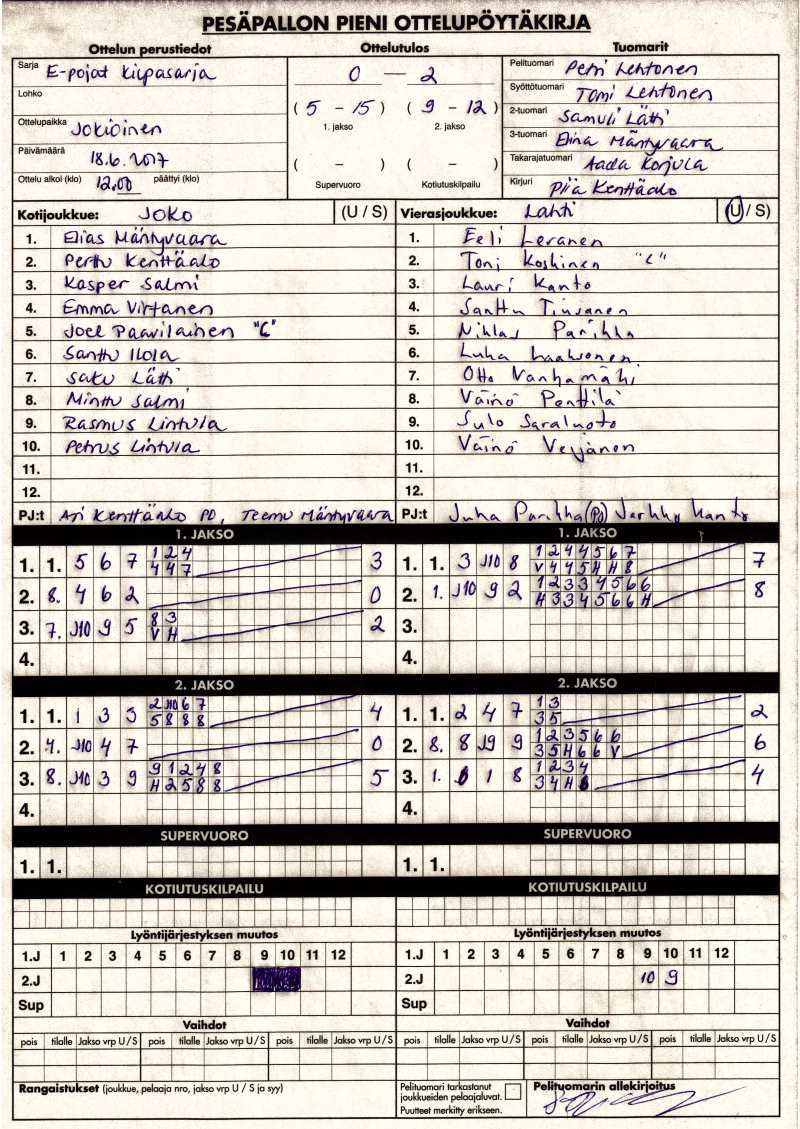 PESÄPALLON PIENI OTTELUPÖYTÄKIRJA
Ottelun perustiedot
Sarja E-pojat kilpasarja
Lohko
Ottelupaikka Jokioinen
Päivämäärä 18.6.2017
Ottelu alkoi (klo) 12.00 päättyi (klo)
Ottelutulos
0 — 2
( 5 - 15 ) ( 9 - 12 )
1. jakso 2. jakso
( - ) ( - )
Supervuoro Kotiutuskilpailu
Tuomarit
Pelituomari Petri Lehtonen
Syöttötuomari Tomi Lehtonen
2-tuomari Samuli Lätti
3-tuomari Elina Mäntyvaara
Takarajatuomari Aada Korjula
Kirjuri Piia Kenttäalo
Kotijoukkue: JOKO (U / S)
1. Elias Mäntyvaara
2. Perttu Kenttäalo
3. Kasper Salmi
4. Emma Virtanen
5. Joel Paavilainen "C"
6. Santtu Ilola
7. Saku Lätti
8. Minttu Salmi
9. Rasmus Lintula
10. Petrus Lintula
11.
12.
PJ:t Ari Kenttäalo PD, Teemu Mäntyvaara
Vierasjoukkue: Lahti (U / S)
1. Eeli Leranen
2. Toni Koskinen "C"
3. Lauri Kanto
4. Santtu Tiusanen
5. Niklas Parikka
6. Luka Laaksonen
7. Otto Vanhamäki
8. Väinö Penttilä
9. Sulo Saraluoto
10. Väinö Veijanen
11.
12.
PJ:t Juha Parikka (PD) Jarkko Kanto
1. JAKSO
1. 1. 5 6 7 1 2 4 3
4 4 7
2. 8. 4 6 2 0
3. 7. J10 9 5 8 3 2
V H
4.
1. JAKSO
1. 1. 3 J10 8 1 2 4 4 5 6 7 7
V 4 4 5 H H 8
2. 1. J10 9 2 1 2 3 3 4 5 6 6 8
H 3 3 4 5 6 6 H
3.
4.
2. JAKSO
1. 1. 1 3 5 2 J10 6 7 4
5 8 8 8
2. 4. J10 4 7 0
3. 8. J10 3 9 9 1 2 4 8 5
H 2 5 8 8
4.
2. JAKSO
1. 1. 2 4 7 1 3 2
3 5
2. 8. 8 J9 9 1 2 3 5 6 6 6
3 5 H 6 6 V
3. 1. 1 8 1 2 3 4 4
3 4 H
4.
SUPERVUORO
1. 1.
SUPERVUORO
1. 1.
KOTIUTUSKILPAILU
KOTIUTUSKILPAILU
Lyöntijärjestyksen muutos
1.J 1 2 3 4 5 6 7 8 9 10 11 12
2.J
Sup
Lyöntijärjestyksen muutos
1.J 1 2 3 4 5 6 7 8 9 10 11 12
2.J 10 9
Sup
Vaihdot
pois tilalle Jakso vrp U / S pois tilalle Jakso vrp U / S pois tilalle Jakso vrp U / S
Vaihdot
pois tilalle Jakso vrp U / S pois tilalle Jakso vrp U / S pois tilalle Jakso vrp U / S
Rangaistukset (joukkue, pelaaja nro, jakso vrp U / S ja syy)
Pelituomari tarkastanut
joukkueiden pelaajaluvat.
Puutteet merkitty erikseen.
Pelituomarin allekirjoitus